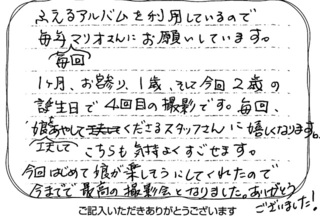 ふえるアルバムを利用しているので
毎年マリオさんにお願いしています。
毎回
1ヶ月、お宮参り、1歳、そして今回2歳の
誕生日で4回目の撮影です。毎回、
娘をあやしてくださるスタッフさんに嬉しくなります。
工夫して
こちらも気持よくすごせます。
今回はじめて娘が楽しそうにしてくれたので
今までで最高の撮影会となりました。ありがとう
ございました!
ご記入いただきありがとうございます